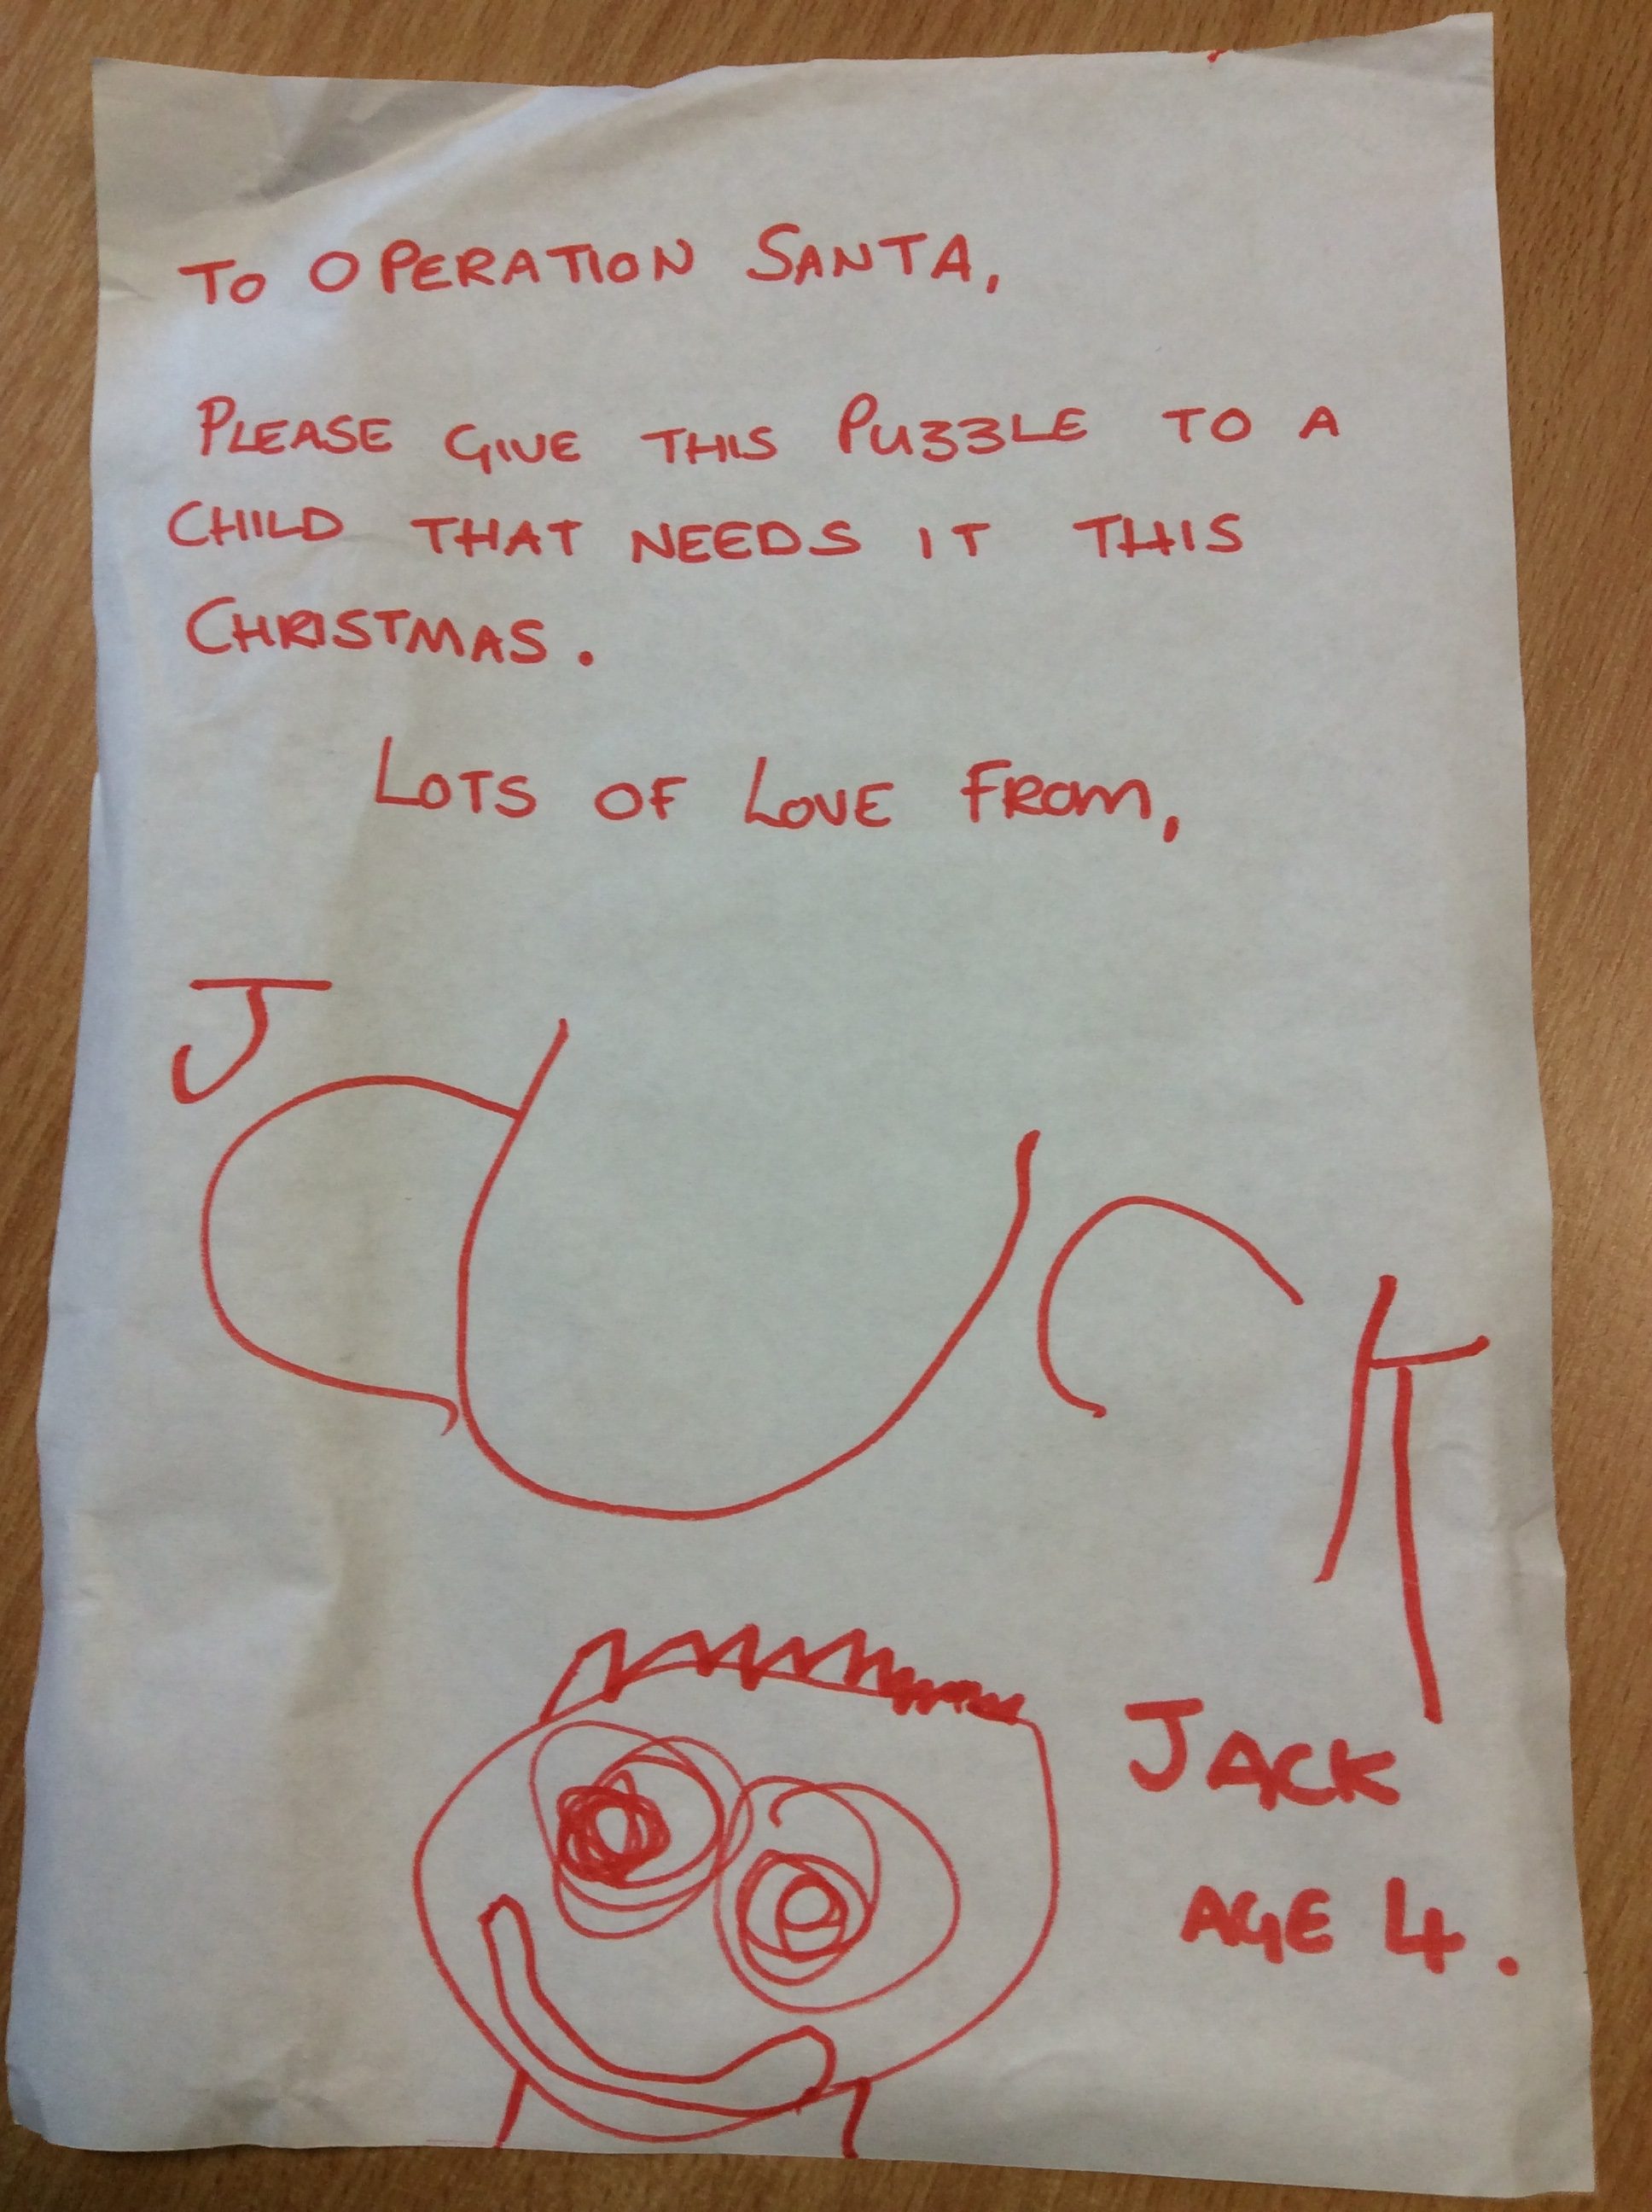 To OPERATION SANTA,
PLEASE GIVE THIS PUZZLE TO A
CHILD THAT NEEDS IT THIS
CHRISTMAS.
LOTS OF LOVE FROM,
Jack
JACK
AGE 4.